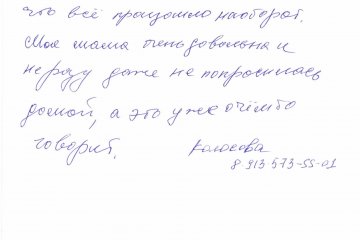 что всё произошло наоборот.
Моя мама очень довольна и
не разу даже не попросилась
домой, а это уже о чём-то
говорит.
Колосова
8 913 573-55-01